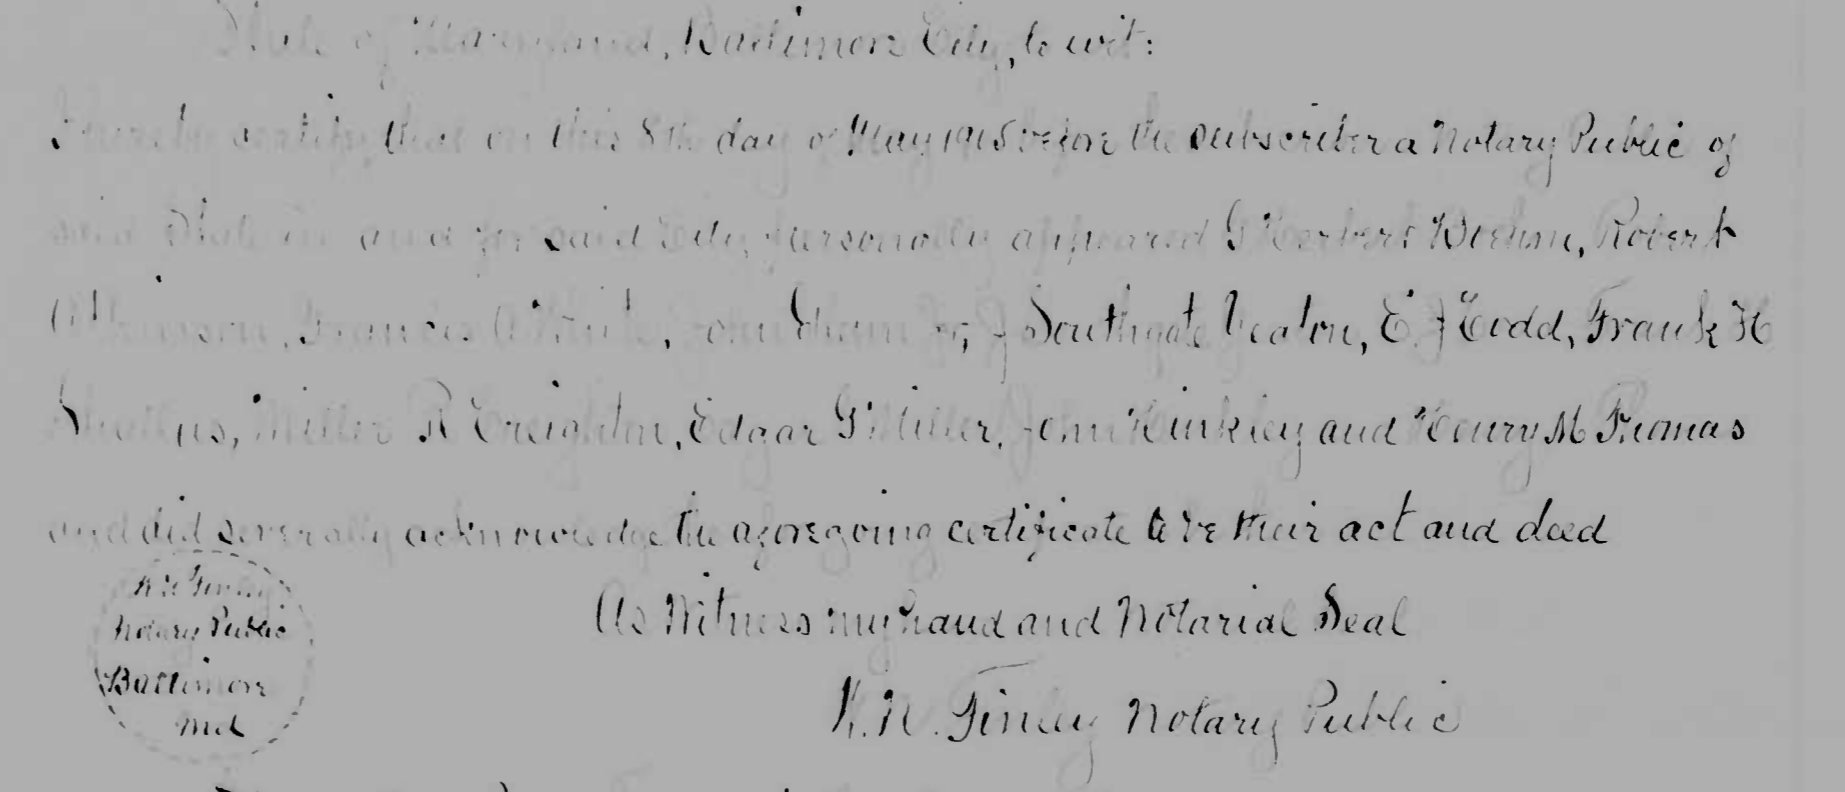 State of Maryland, Baltimore City, to wit:
I hereby certify that on this 8th day of May 1915 before the subscriber a Notary Public of
said State in and for said City, personally appeared G Herbert Boehm, Robert
Francis A Southgate Yeaton, E J Codd, Frank H
Miller R Creighton, Edgar G Miller, John Hinkley and Henry M Thomas
and did severally acknowledge the aforegoing certificate to be their act and deed
As Witness my hand and Notarial Seal
Finley
Notary Public
Baltimore
Md
K. N. Finley Notary Public